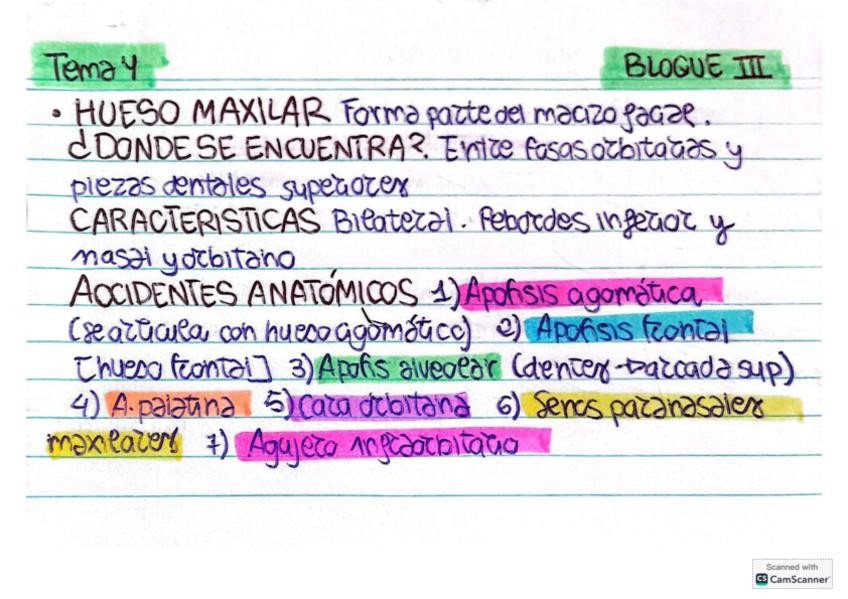 Tema 4 BLOQUE III
• HUESO MAXILAR Forma parte del macizo facial.
¿DONDE SE ENCUENTRA?. Entre fosas orbitarias y
piezas dentales superiores
CARACTERISTICAS Bilateral. Rebordes inferior y
nasal y orbitario
ACCIDENTES ANATÓMICOS 1) Apofisis agomática
(se articula con hueso agomático) 2) Apofisis frontal
[hueso frontal] 3) Apofis alveolar (dientes → arcada sup)
4) A. palatina 5) Cara orbitaria 6) Senos paranasales
maxilares 7) Agujero infraorbitario
Scanned with
CS CamScanner